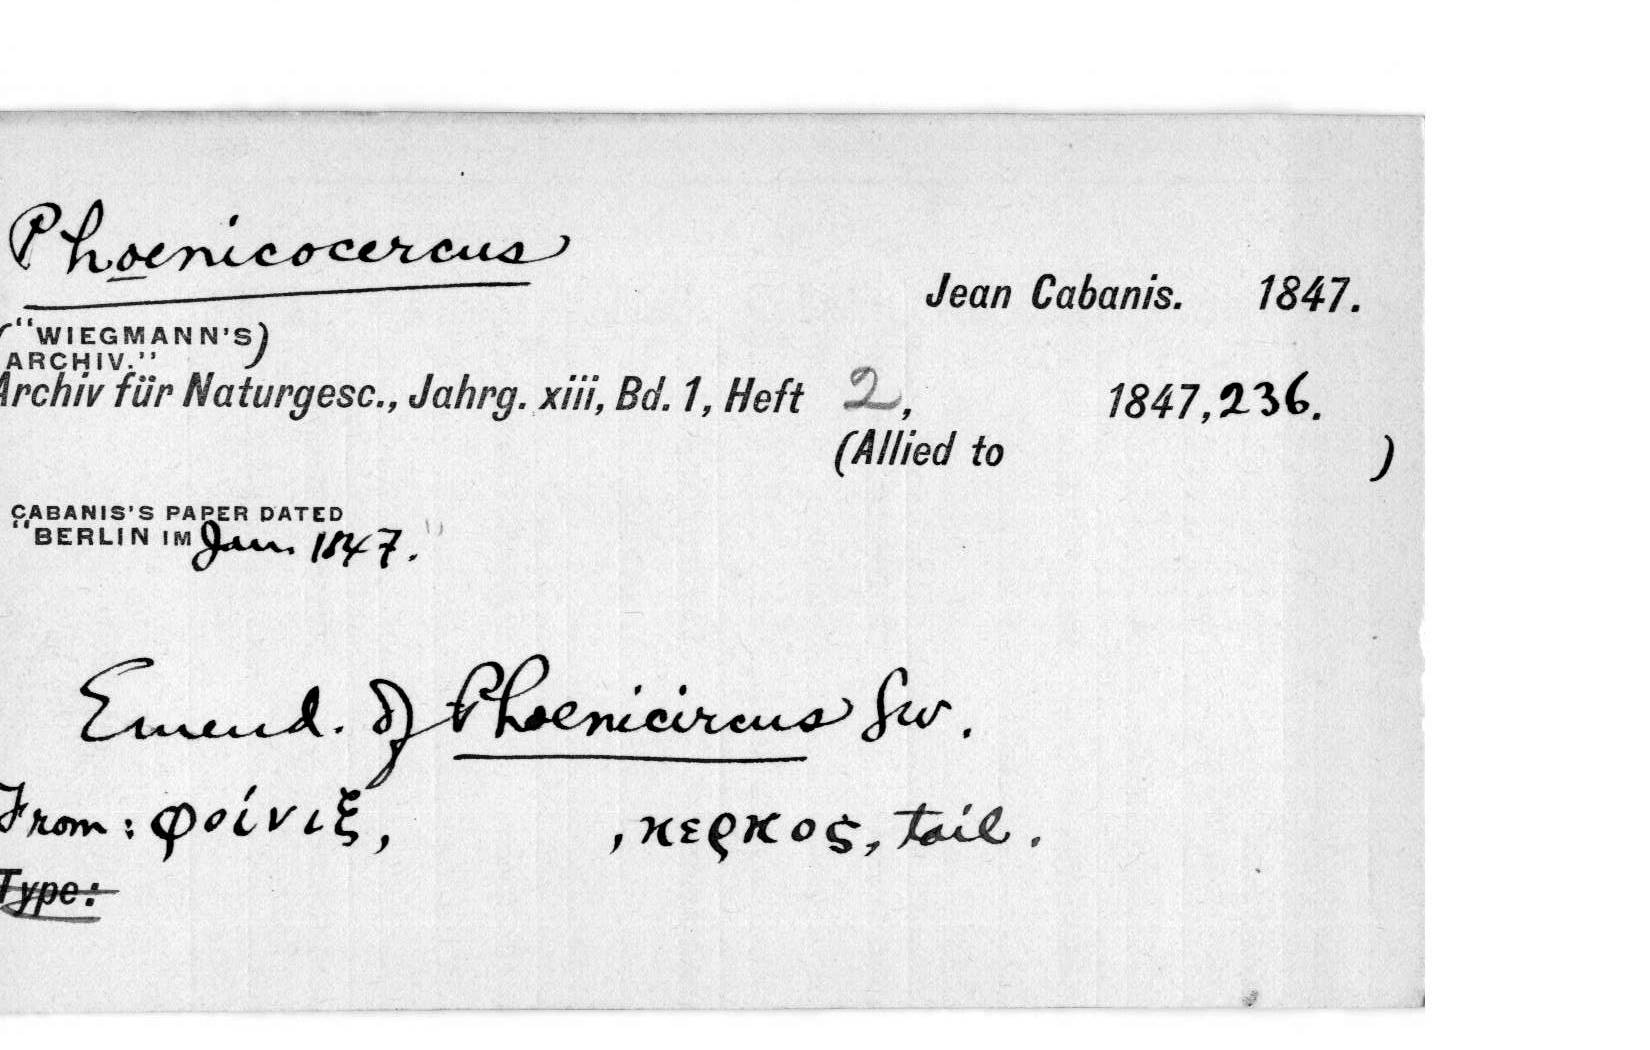 Phoenicocercus
Jean Cabanis. 1847.
("WIEGMANN'S)
ARCHIV."
Archiv für Naturgesc., Jahrg. xiii, Bd. 1, Heft 2, 1847, 236.
(Allied to )
CABANIS'S PAPER DATED
"BERLIN IM Jan. 1847."
Emend. of Phoenicircus Sw.
From: φοίνιξ, , κερκος, tail.
Type: